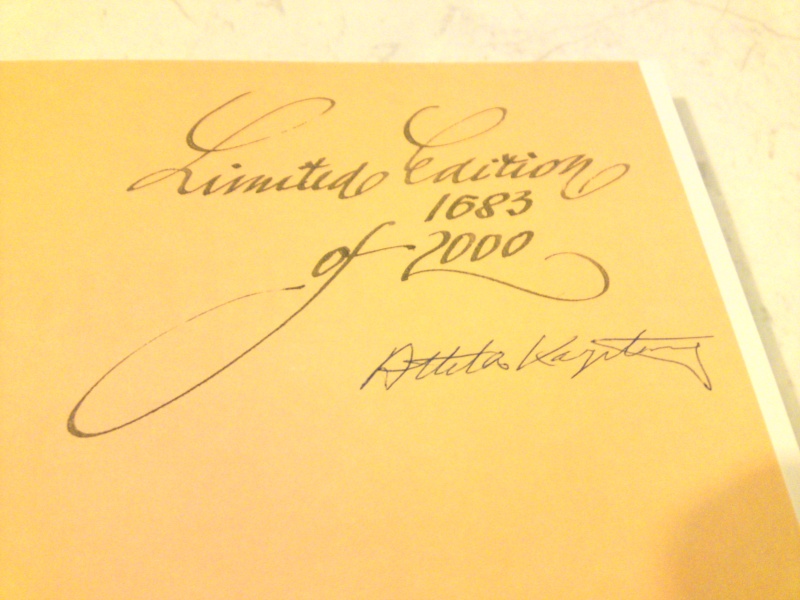 Limited Edition
1683
of 2000
Attila